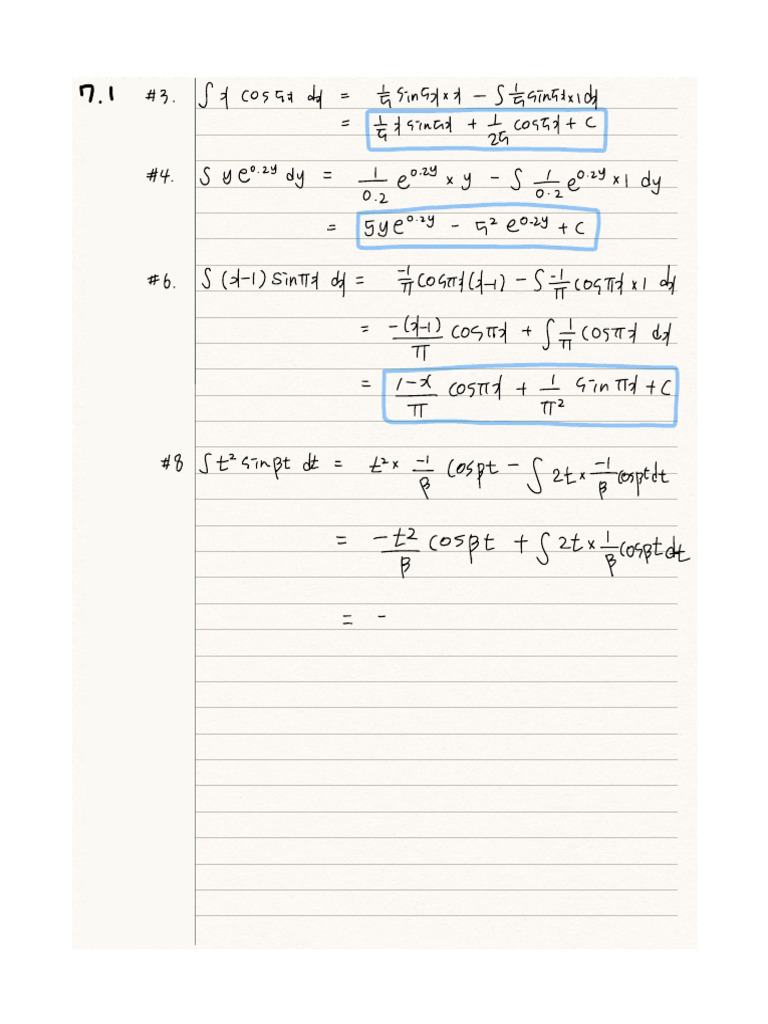 7.1 #3. ∫ x cos5x dx = 1/5 sin5x × x − ∫ 1/5 sin5x × 1 dx
= 1/5 x sin5x + 1/25 cos5x + C
#4. ∫ y e^0.2y dy = 1/0.2 e^0.2y × y − ∫ 1/0.2 e^0.2y × 1 dy
= 5y e^0.2y − 5² e^0.2y + C
#6. ∫ (x−1) sinπx dx = −1/π cosπx (x−1) − ∫ −1/π cosπx × 1 dx
= −(x−1)/π cosπx + ∫ 1/π cosπx dx
= 1−x/π cosπx + 1/π² sinπx + C
#8 ∫ t² sinβt dt = t² × −1/β cosβt − ∫ 2t × −1/β cosβt dt
= −t²/β cosβt + ∫ 2t × 1/β cosβt dt
= −